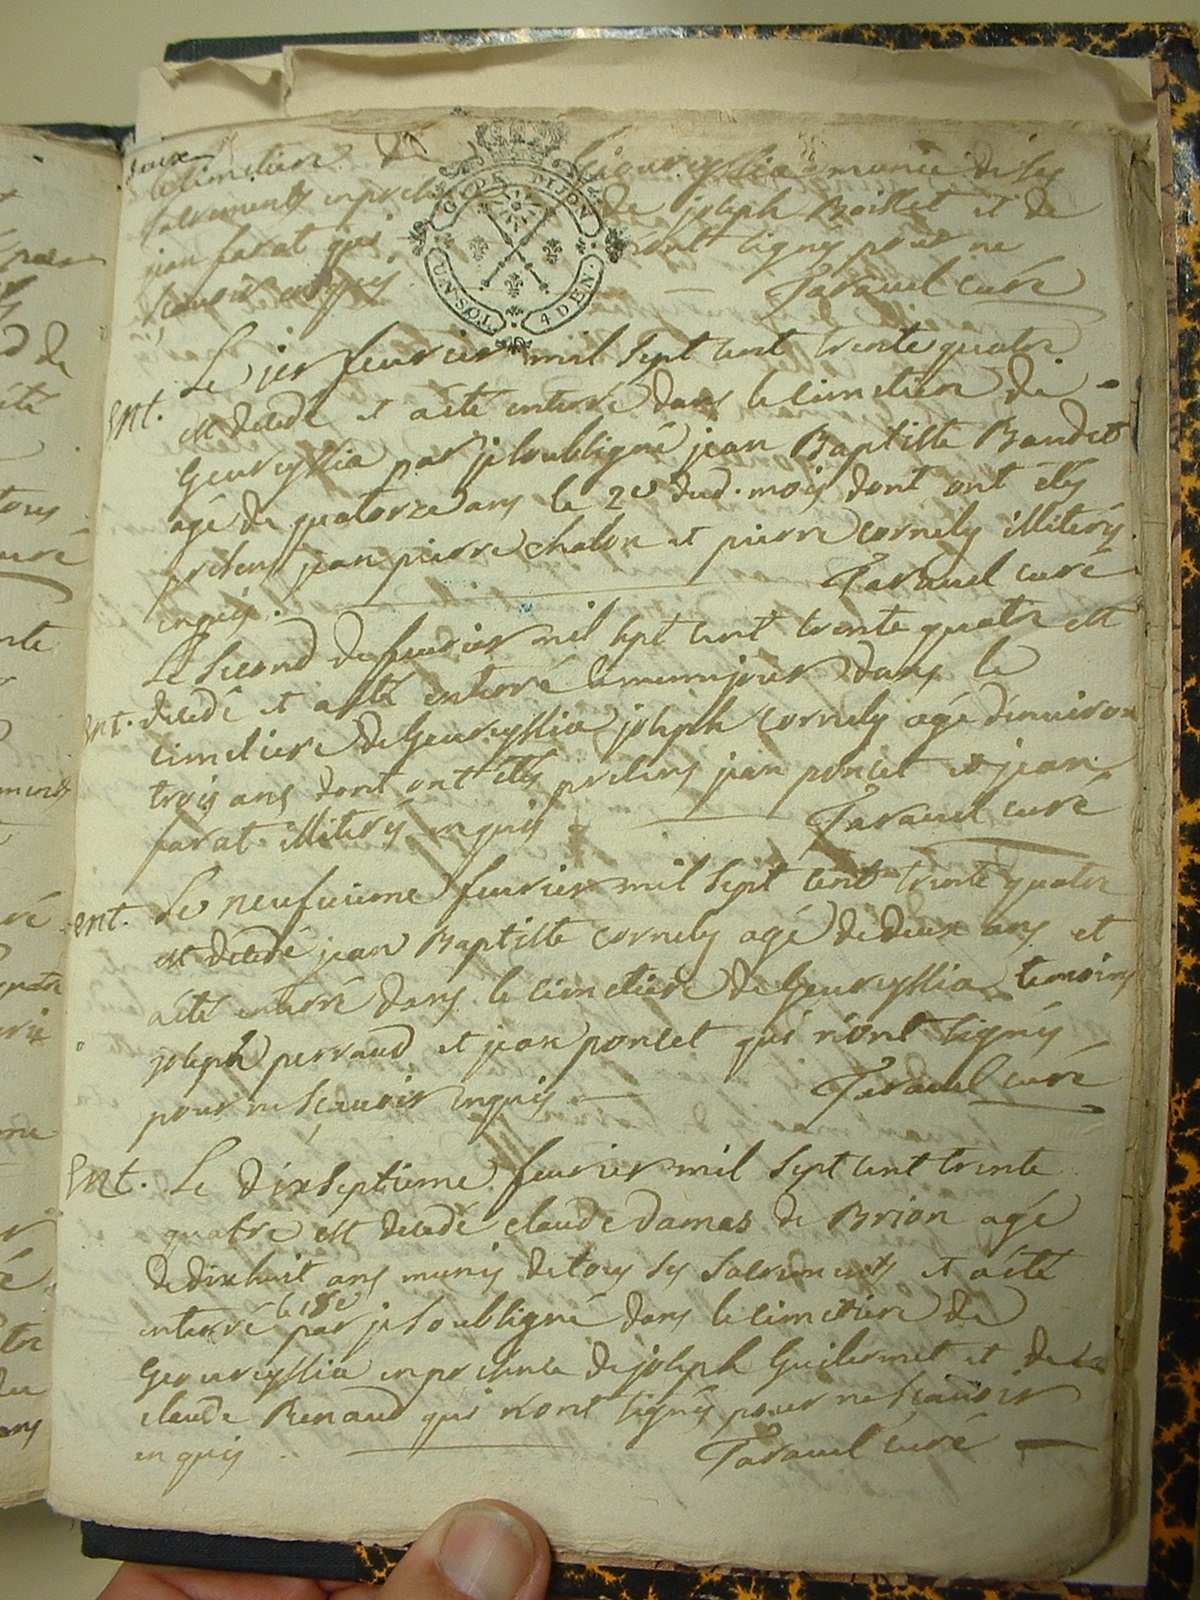 deux
le cimetiere de Geovreyssia munie de ses
sacrements en presence de joseph Boisset et de
jean farat qui n'ont signés pour ne
scavoir enquis Taravel curé
GNDE DIJON
UN SOL 4 DEN.
Ent. Le jer feuvrier mil sept cent trente quatre
est decedé et a eté enterré dans le cimetiere de
Geovreyssia par je soubsigné jean Baptiste Baudet
agé de quatorze ans le 2e dud. mois dont ont étés
presens jean pierre chalon et pierre cornely illiterés
enquis. Taravel curé
Le second de feuvrier mil sept cent trente quatre est
Ent. decedé et a eté enterré le meme jour dans le
cimetiere de Geovreyssia joseph cornely agé d'environ
trois ans dont ont étés presens jean poncet et jean
farat illiterés enquis Taravel curé
Ent. Le neufvieme feuvrier mil sept cent trente quatre
est decedé jean Baptiste cornely agé de deux ans et
a eté enterré dans le cimetiere de Geovreyssia temoins
joseph perraud et jean poncet qui n'ont signés
pour ne scavoir enquis Taravel curé
Ent. Le dixseptieme feuvrier mil sept cent trente
quatre est decedé claude damas de Brion agé
de dixhuit ans munis de tous ses sacrements et a eté
enterré le 18e par je soubsigné dans le cimetiere de
Geovreyssia en presence de joseph Guilermet et de
claude Renaud qui n'ont signés pour ne scavoir
enquis. Taravel curé